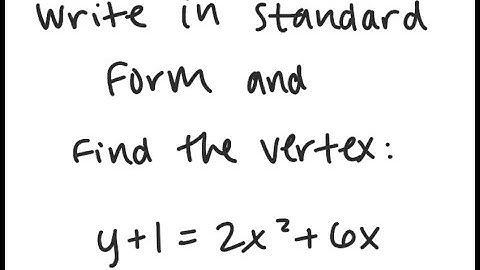 Write in Standard
Form and
Find the vertex:
y+1=2x²+6x